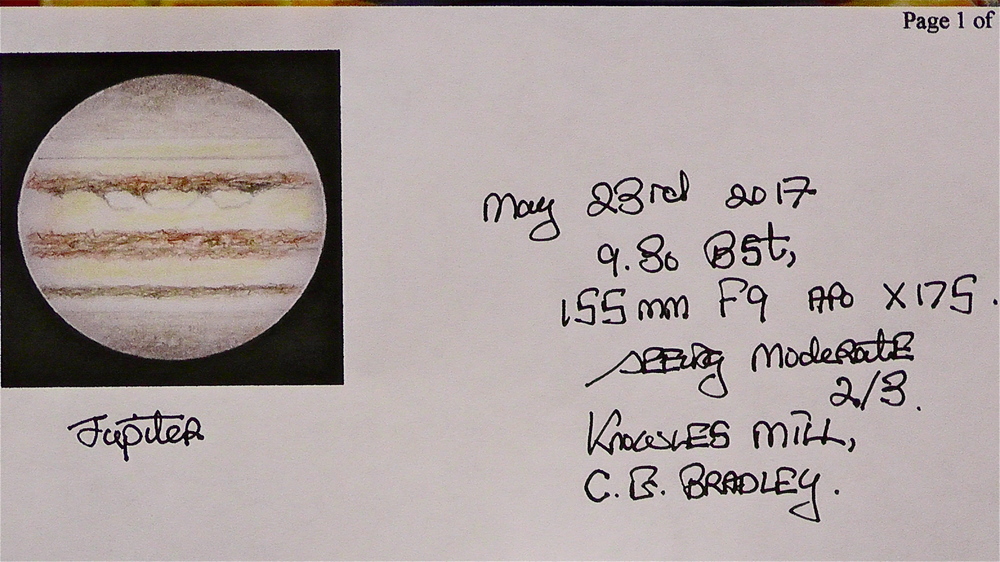 Page 1 of
May 23rd 2017
9.30 BST,
155mm F9 APO X175.
SEEING MODERATE
2/3.
KNOWLES MILL,
C. E. BRADLEY.
Jupiter